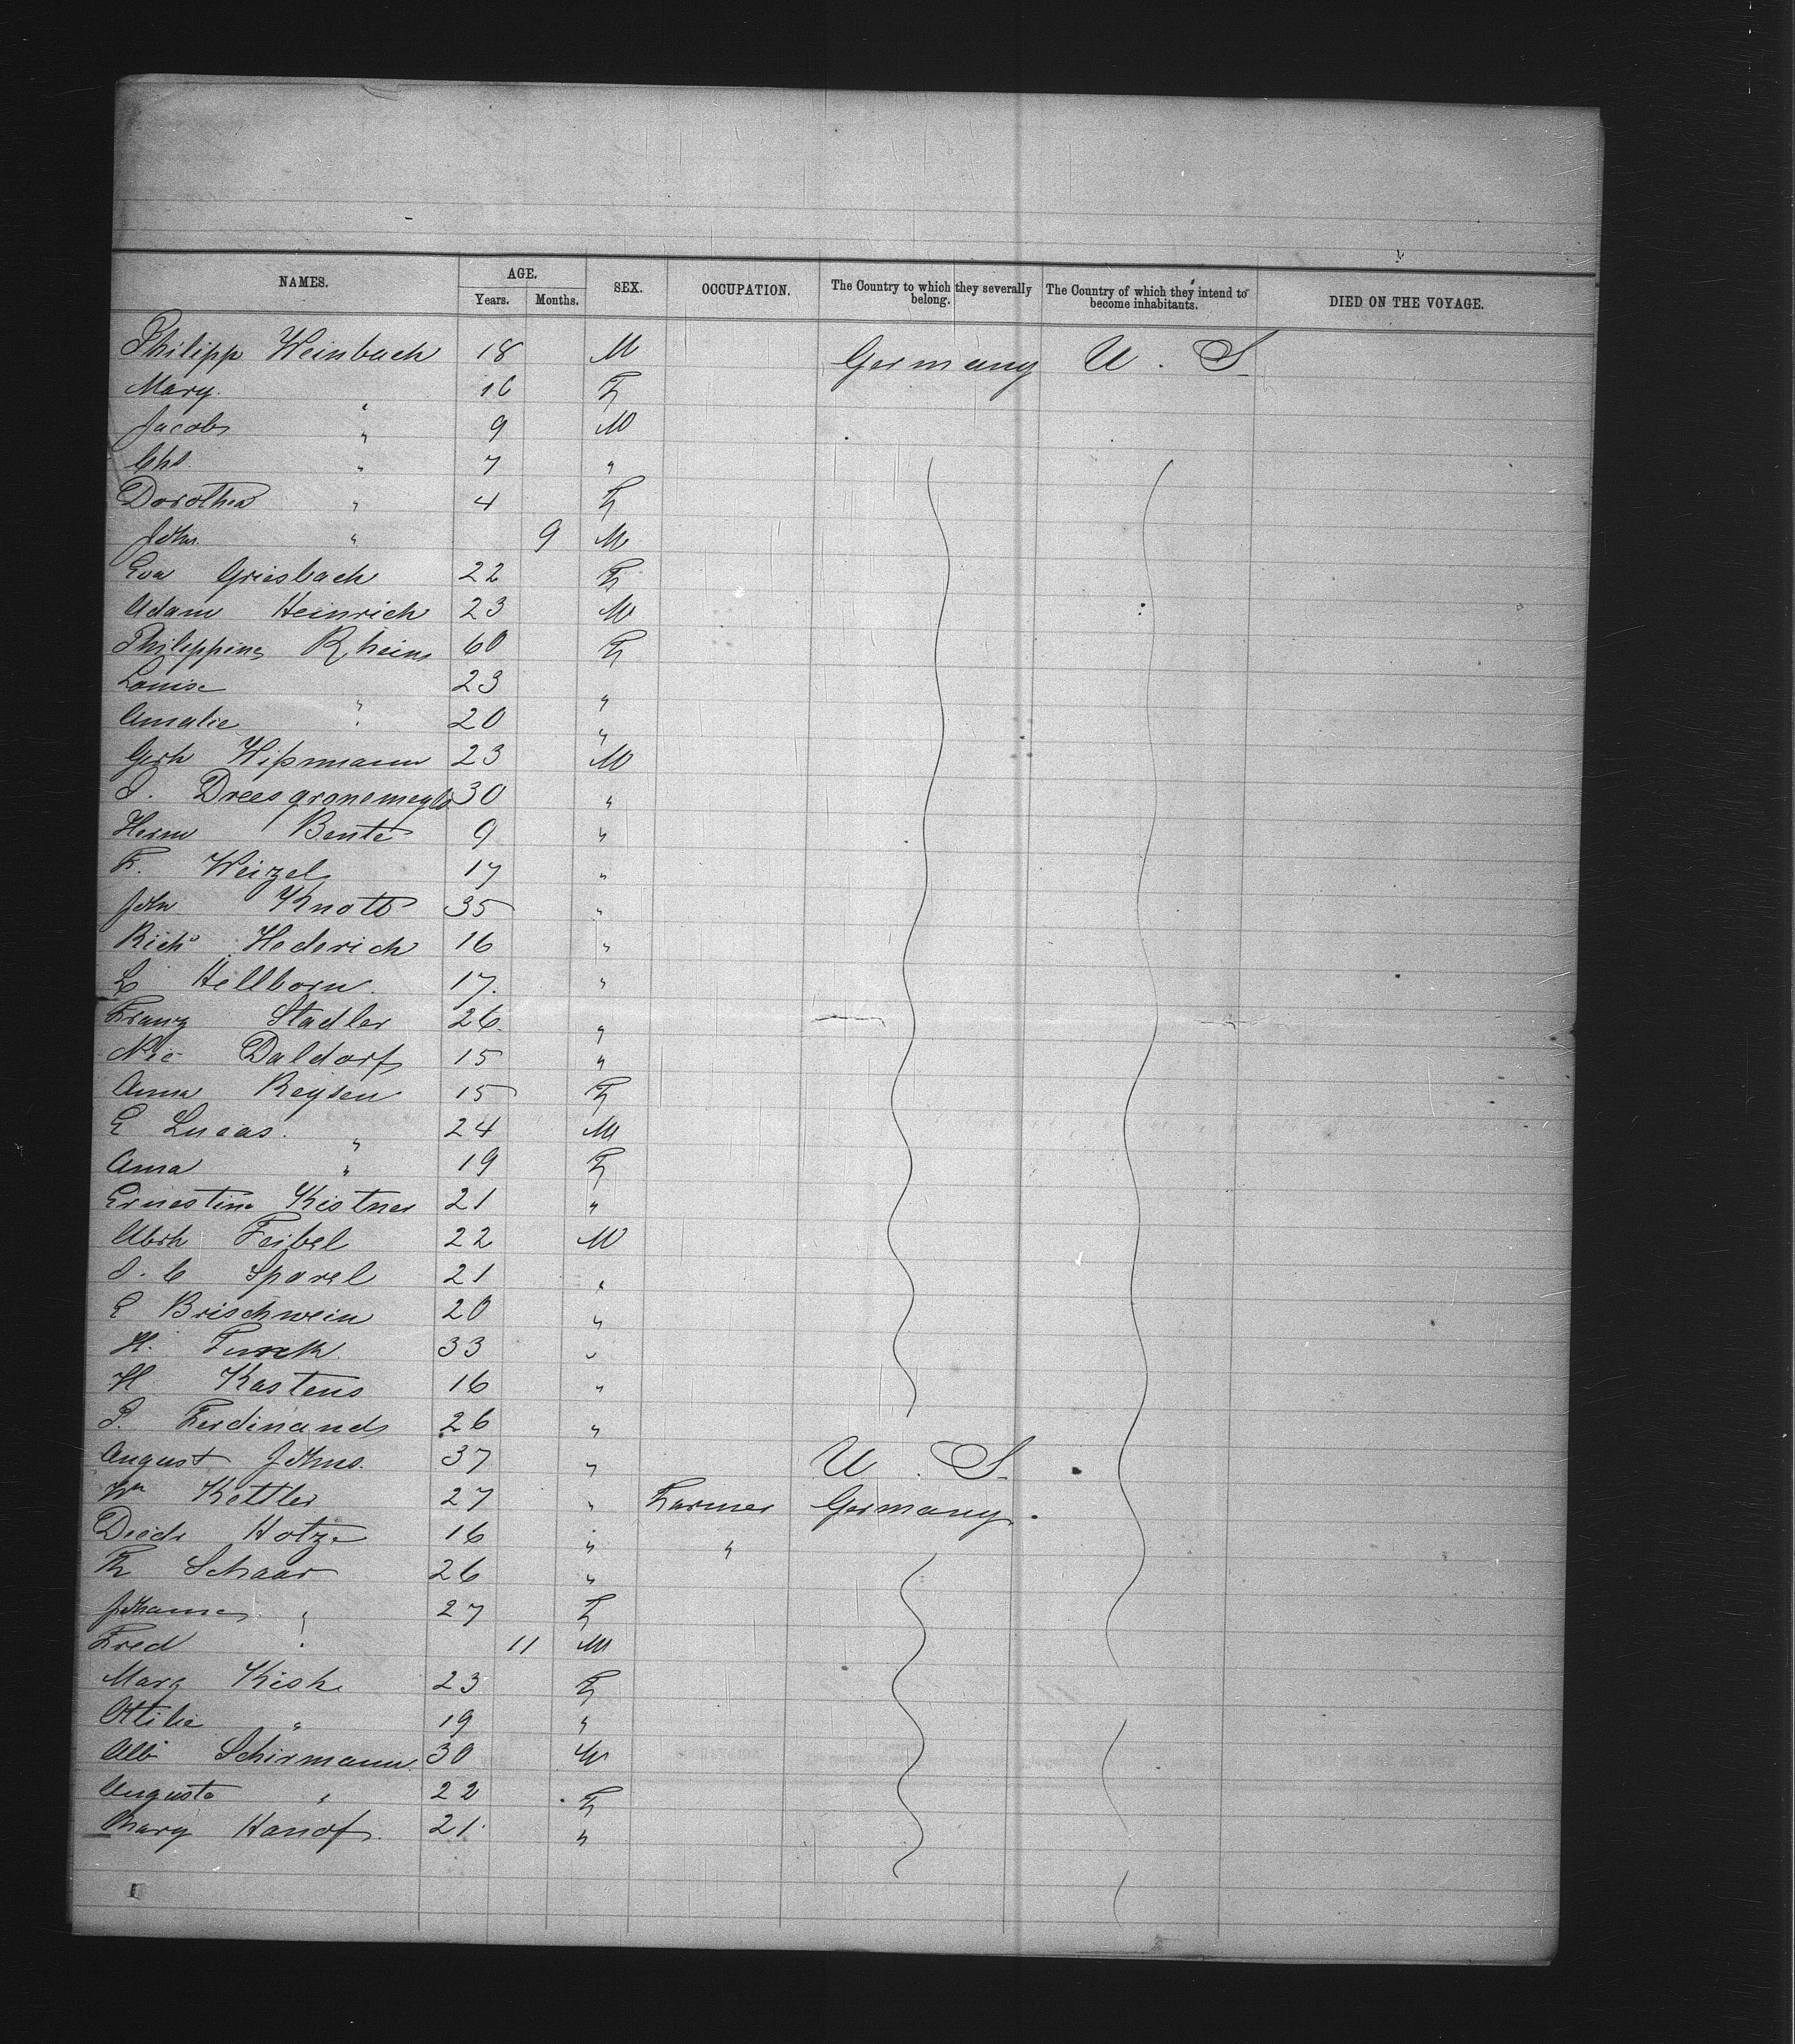 NAMES. AGE. SEX. OCCUPATION. The Country to which they severally belong. The Country of which they intend to become inhabitants. DIED ON THE VOYAGE.
Years. Months.
Philipp Weinbach 18 M Germany U. S.
Mary " 16 F
Jacob " 9 M
Chs " 7 "
Dorothea " 4 F
John " 9 M
Eva Griesbach 22 F
Adam Heinrich 23 M
Philippine Rhein 60 F
Louise " 23 "
Amalie " 20 "
Gerh Wißmann 23 M
J. 30 "
Herm Bente 9 "
F. Weizel 17 "
John Knott 35 "
Richd Hederich 16 "
L Hellborn 17. "
Franz Stadler 26 "
Nic Daldorf 15 "
Anna Reysen 15 F
E Lucas. " 24 M
Anna " 19 F
Ernestine Kistner 21 "
Abrh Feibel 22 M
J. C Sporel 21 "
E Brischwein 20 "
H. 33 "
H Kastens 16 "
P. Ferdinand 26 "
August Johns. 37 " U. S.
Wm Kettler 27 " Farmer Germany.
Diedr Hotze 16 " "
Fr Schaar 26 "
Johanne " 27 F
Fred " 11 M
Marg Kish 23 F
Ottilie " 19 "
Alb Schirmann 30 M
Auguste " 22 F
Mary Hanof. 21. "